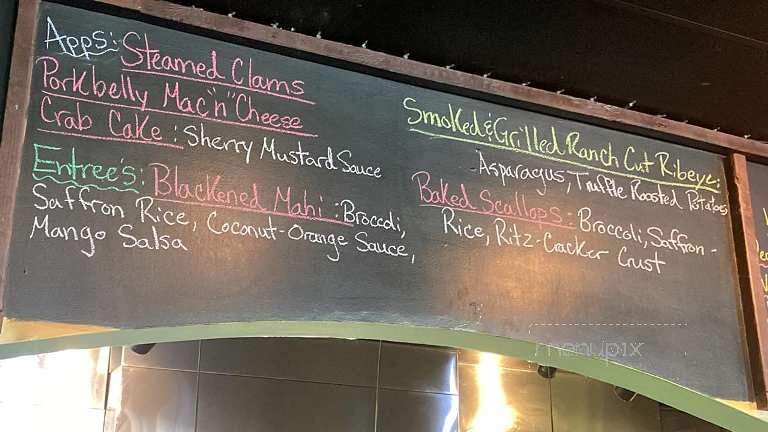 Apps: Steamed Clams
Porkbelly Mac "n" Cheese
Crab Cake: Sherry Mustard Sauce
Entree's: Blackened Mahi: Broccoli,
Saffron Rice, Coconut-Orange Sauce,
Mango Salsa
Smoked & Grilled Ranch Cut Ribeye:
Asparagus, Truffle Roasted Potatoes
Baked Scallops: Broccoli, Saffron-
Rice, Ritz-Cracker Crust
menupix